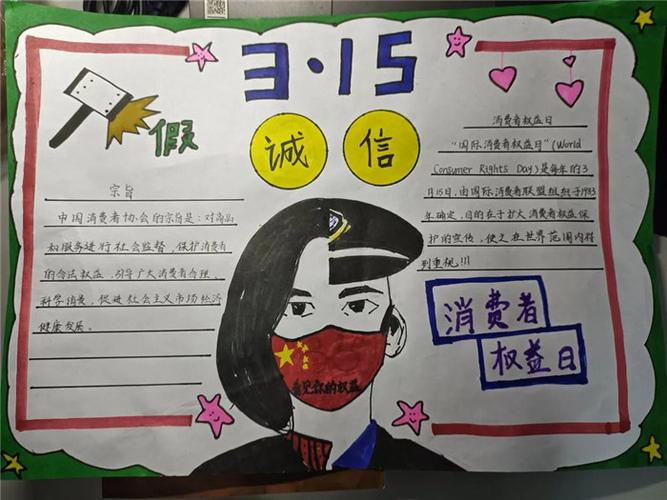 3·15
诚信
假
宗旨
中国消费者协会的宗旨是：对商品
和服务进行社会监督，保护消费者
的合法权益，引导广大消费者合理、
科学消费，促进社会主义市场经济
健康发展。
消费者权益日
“国际消费者权益日”(World
Consumer Rights Day)是每年的3
月15日，由国际消费者联盟组织于1983
年确定，目的在于扩大消费者权益保
护的宣传，使之在世界范围内得
到重视!!!
消费者
权益日
看见你的权益